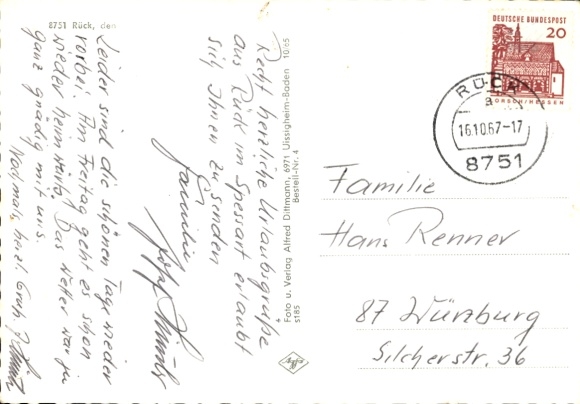 8751 Rück, den
Recht herzliche Urlaubsgrüße
aus Rück im Spessart erlaubt
sich Ihnen zu senden
Familie
Leider sind die schönen Tage wieder
vorbei. Am Freitag geht es schon
wieder heimwärts. Das Wetter war ja
ganz gnädig mit uns.
Nochmals herzl. Gruß
Foto u. Verlag Alfred Dittmann, 6971 Uissigheim-Baden 10/65
Bestell-Nr. 4
s185
Agfa
DEUTSCHE BUNDESPOST
20
LORSCH/HESSEN
RÜCK
a
16.10.67-17
8751
Familie
Hans Renner
87 Würzburg
Silcherstr. 36